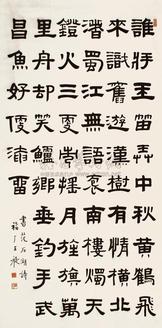 誰將玉笛弄中秋黃鶴飛
來識舊遊漢樹有情橫北
渚蜀江無語抱南樓燭天
鐙火三更市搖月旌旗萬
里舟却笑鱸鄉垂釣手武
昌魚好便淹留
書范石湖詩
福厂王禔